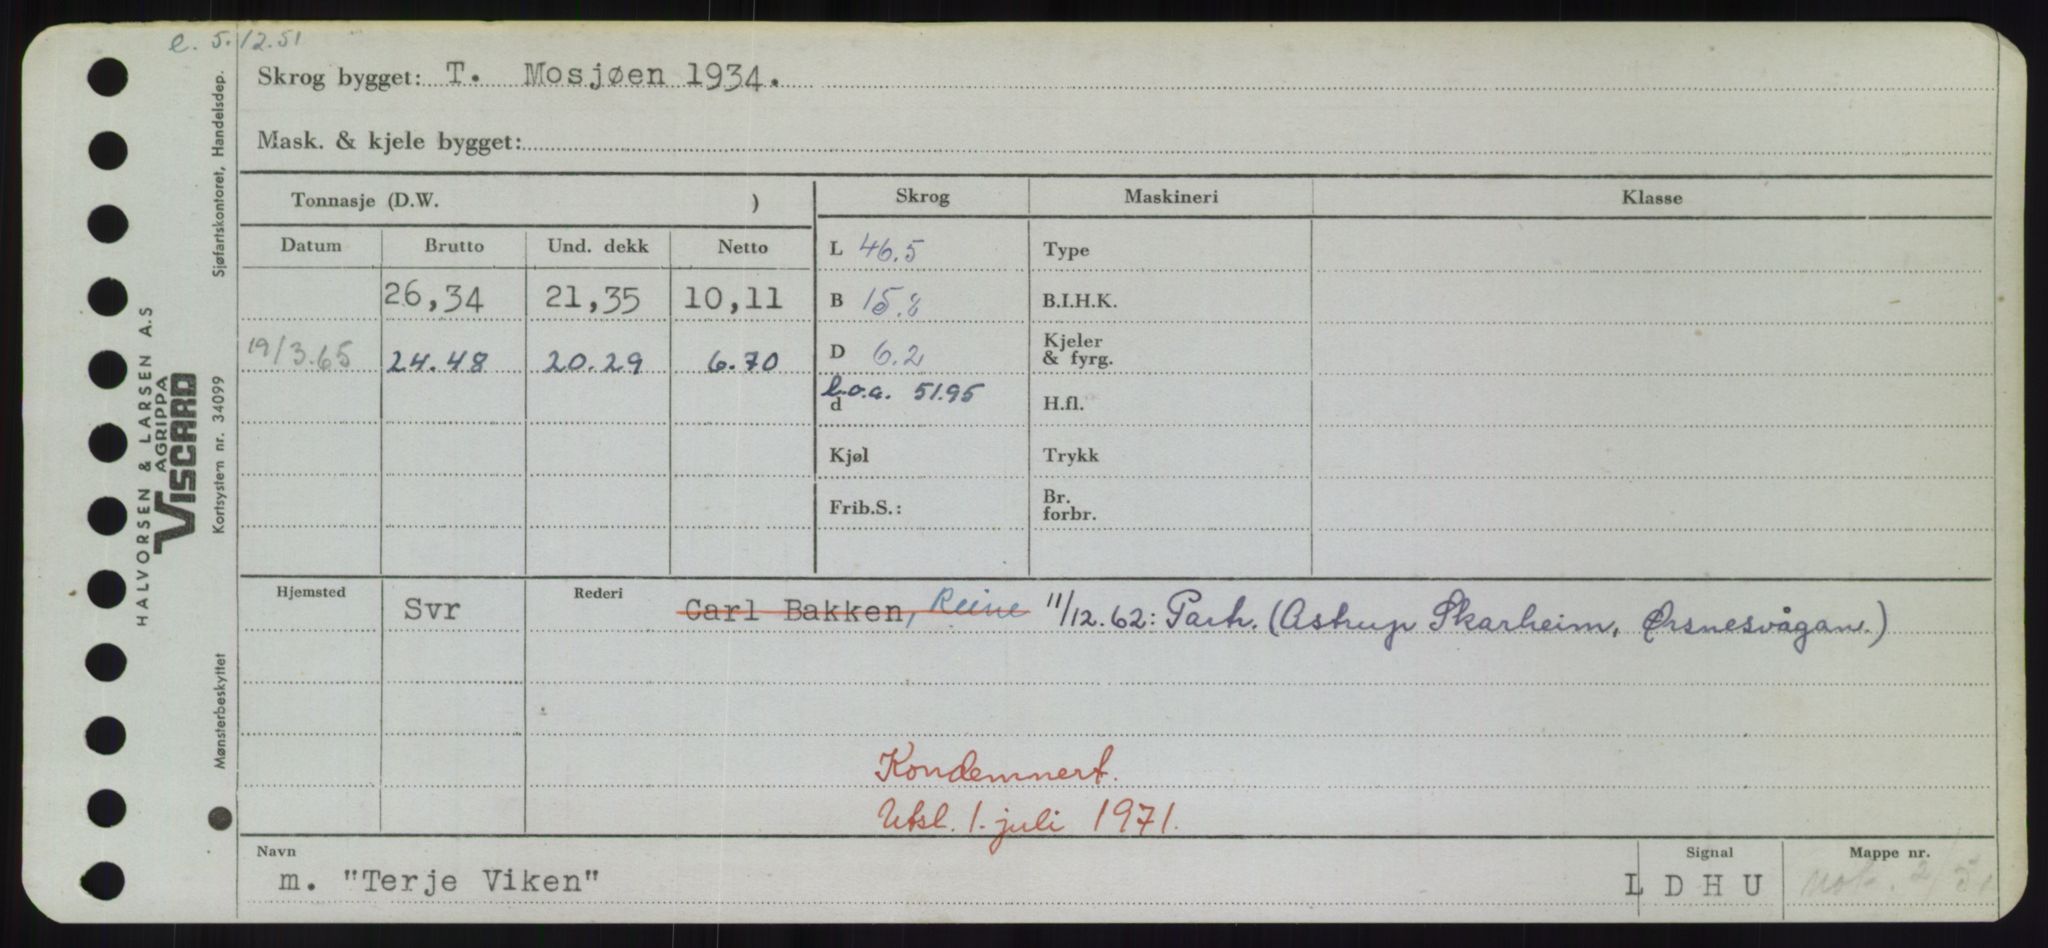 e. 5.12.51
Skrog bygget: T. Mosjøen 1934.
Mask. & kjele bygget:
Tonnasje (D.W. )
Skrog Maskineri Klasse
Datum Brutto Und. dekk Netto
L 46.5 Type
26,34 21,35 10,11
B 15.8 B.I.H.K.
19/3.65 24.48 20.29 6.70
D 6.2 Kjeler & fyrg.
l.o.a. 51.95
d H.fl.
Kjøl Trykk
Frib.S.: Br. forbr.
Hjemsted Svr Rederi Carl Bakken, Reine 11/12.62: Partr. (Astrup Skarheim, Ørsnesvågan.)
Kondemnert.
Utsl. 1. juli 1971.
Navn Signal Mappe nr.
m. "Terje Viken" L D H U
Sjøfartskontoret, Handelsdep.
HALVORSEN & LARSEN A.S
AGRIPPA
VISCARD
Kortsystem nr. 34099
Mønsterbeskyttet